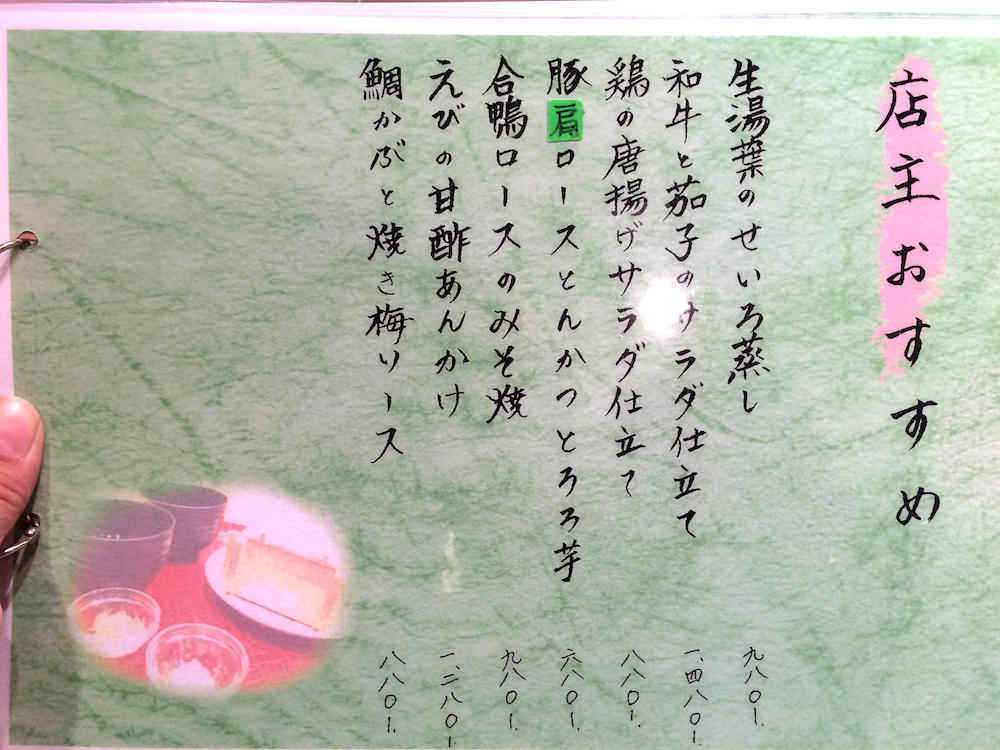 店主おすすめ
生湯葉のせいろ蒸し 九八〇.
和牛と茄子のサラダ仕立て 一、四八〇.
鶏の唐揚げサラダ仕立て 八八〇.
豚肩ロースとんかつとろろ芋 六八〇.
合鴨ロースのみそ焼 九八〇.
えびの甘酢あんかけ 一、二八〇.
鯛かぶと焼き梅ソース 八八〇.